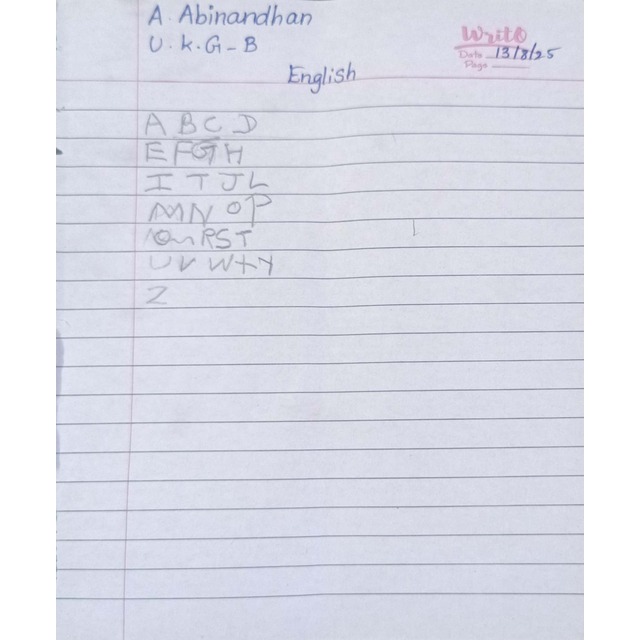 A. Abinandhan
U.K.G-B
Write
Date 13/8/25
Page
English
A B C D
E F G H
I T J L
M N O P
Q R S T
U V W X Y
Z